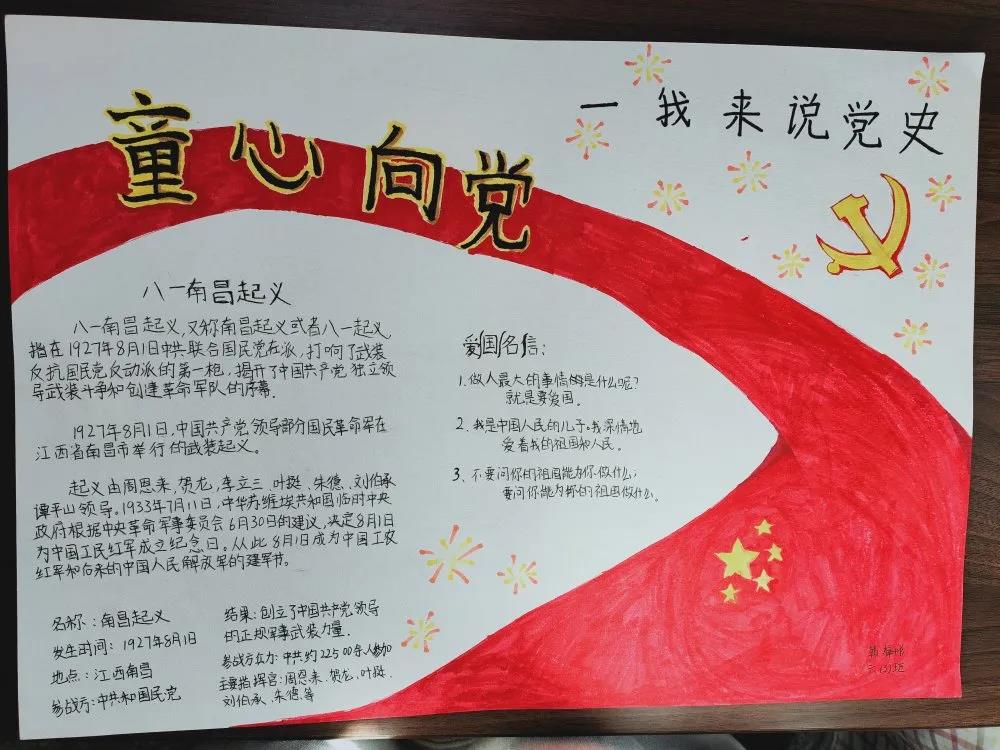 童心向党
一我来说党史
八一南昌起义
八一南昌起义,又称南昌起义或者八一起义,
指在1927年8月1日中共联合国民党左派,打响了武装
反抗国民党反动派的第一枪,揭开了中国共产党独立领
导武装斗争和创建革命军队的序幕.
1927年8月1日,中国共产党领导部分国民革命军在
江西省南昌市举行的武装起义。
起义由周恩来,贺龙,李立三,叶挺,朱德,刘伯承
谭平山领导。1933年7月11日,中华苏维埃共和国临时中央
政府根据中央革命军事委员会6月30日的建议,决定8月1日
为中国工民红军成立纪念日。从此8月1日成为中国工农
红军和后来的中国人民解放军的建军节。
名称:南昌起义
发生时间:1927年8月1日
地点:江西南昌
参战方:中共和国民党
结果:创立了中国共产党领导
的正规军事武装力量.
参战方兵力:中共约22500余人参加
主要指挥官:周恩来、贺龙、叶挺、
刘伯承、朱德等
爱国名信:
1.做人最大的事情的是什么呢?
就是要爱国。
2.我是中国人民的儿子。我深情地
爱着我的祖国和人民。
3.不要问你的祖国能为你做什么;
要问你能为你的祖国做什么。